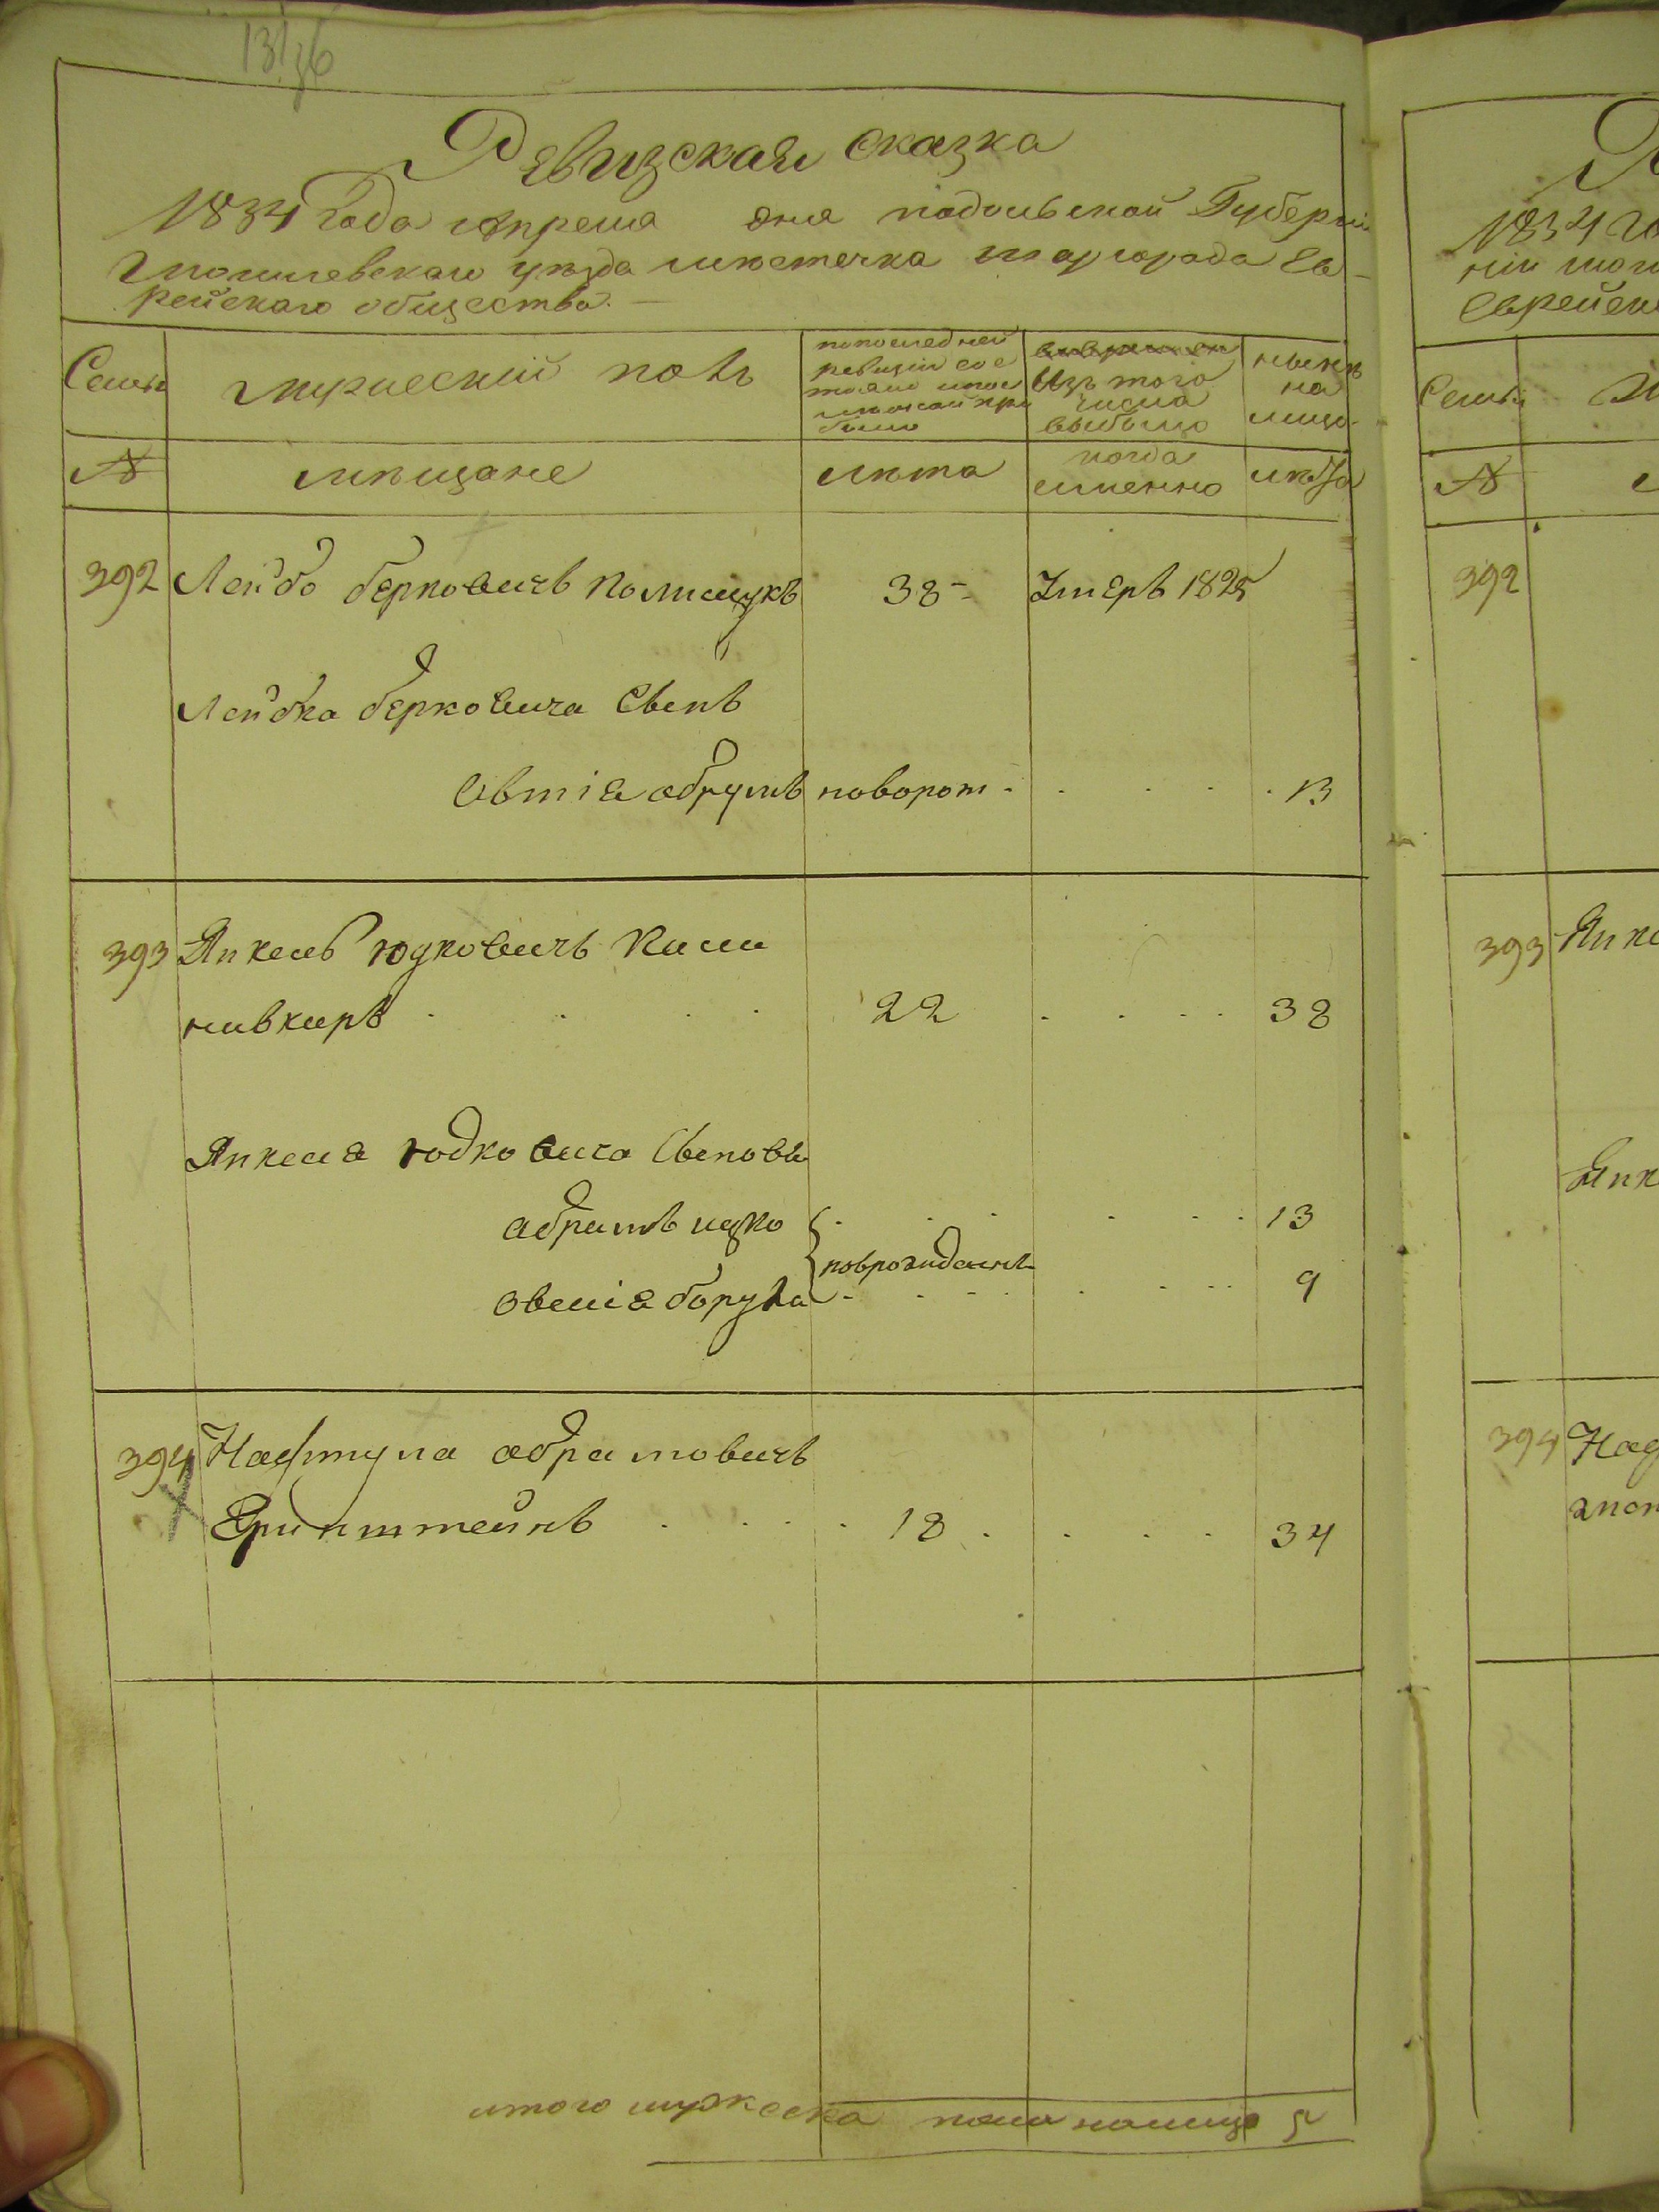 131
36
Ревизская сказка
1834 года Апреля дня подольской Губерніи
Могилевскаго уѣзда мѣстечка шаргорода Ев-
рейскаго общества.
Семьи
мужескій полъ
по последней
ревизіи сос
тояло и после
оной при
было
Изъ того
числа
выбыло
нынѣ
на
лицо
№
мѣщане
лѣта
когда
именно
лѣта
392 Лейбо берковичъ Полищукъ 38 Умеръ 1825
Лейбка берковича Сынъ
абрумъ поворот 13
393 Янкель юдковичъ Кили
нивкеръ 22 38
Янкеля юдковича Сыновья
абрамъ ицко 13
поврожиденъ
боруха 9
394 Нафтула абрамовичъ
штейнъ 18 34
итого мужеска пола налицо 5
Р
1834 го
ніи моги
Еврейск
Семьи
М
№
392
393 Янке
Янк
394 Наф